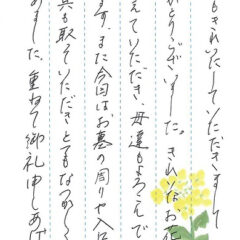 もきれいにしていただきまして
がとうございました。きれいなお花
えていただき、母達もよろこんで
ます。また今回はお墓の周りや入口
真も取っていただきとてもなつかしく
ありました。重ねて御礼申しあげ